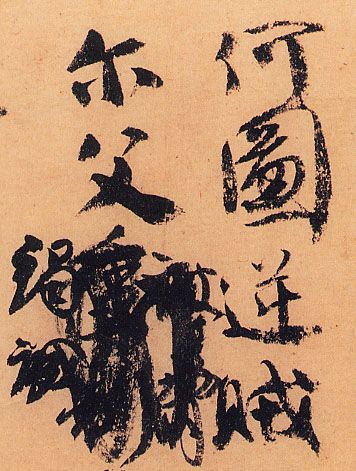 何圖逆賊
尔父
竭誠